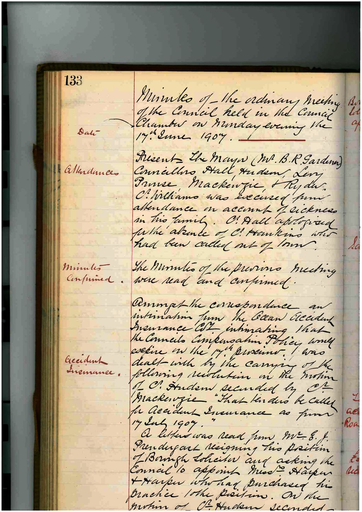 133
Minutes of the ordinary Meeting
of the Council held in the Council
Chamber on Monday evening the
Date
17th June 1907.
Present The Mayor (Mr. B. R. Gardener)
Attendances
Councillors Hall, Hudson, Levy
Prowse, Mackenzie, & Ryder.
Cr Williams was excused from
attendance on account of sickness
in his family, Cr Hall apologised
for the absence of Cr Hawkins who
had been called out of town.
Minutes
Confirmed.
The Minutes of the previous meeting
were read and confirmed.
Amongst the correspondence an
intimation from the Ocean Accident
Insurance Coy. intimating that
the Councils Compensation Policy would
expire on the 17th proximo, was
Accident
Insurance.
dealt with by the carrying of the
following resolution on the motion
of Cr Hudson seconded by Cr
Mackenzie "That tenders be called
for Accident Insurance as from
17 July 1907."
A letter was read from Mr E. J.
Prendergast resigning his position
of Borough Solicitor and asking the
Council to appoint Messrs Harper
& Harper who had purchased his
practice to the position. On the
motion of Cr Hudson seconded